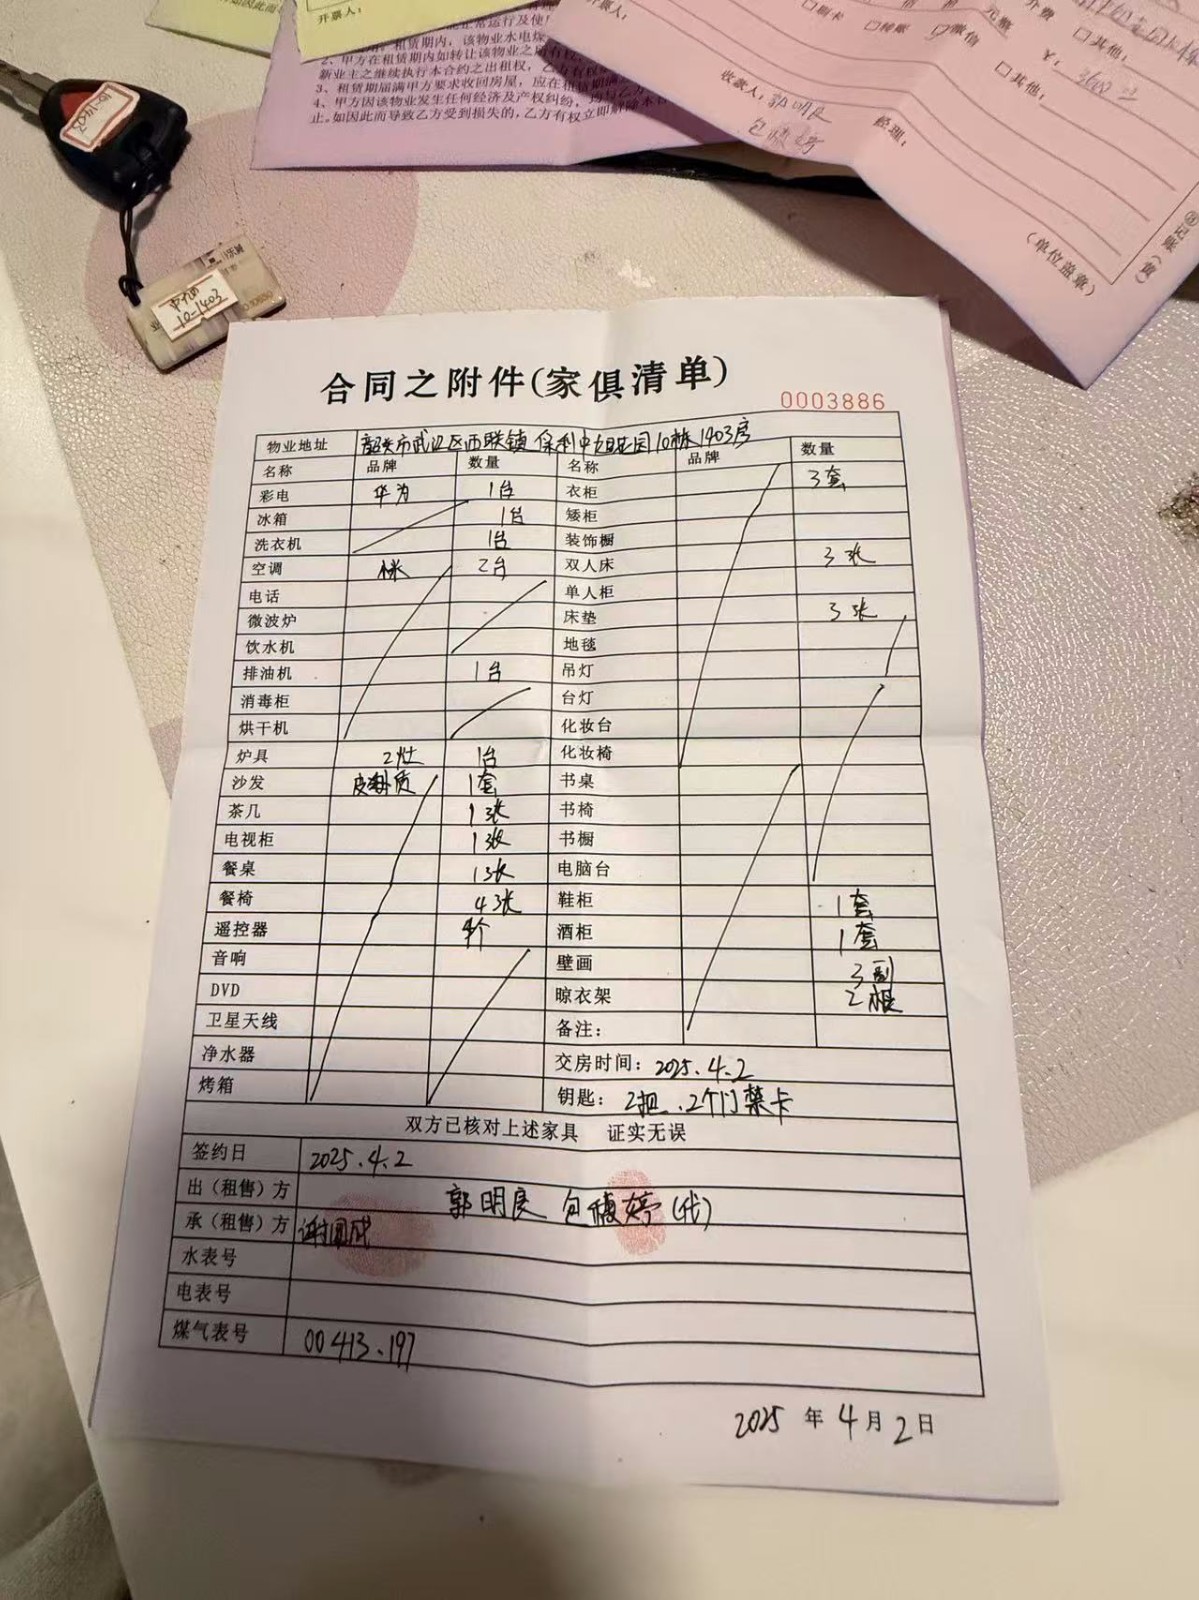 开票人：
租赁期内，该物业水电煤
2、甲方在租赁期内如转让该物业之所有权，
新业主之继续执行本合约之出租权，乙方有权
3、租赁期届满甲方要求收回房屋，应在租赁期满
4、甲方因该物业发生任何经济及产权纠纷，均与乙方
止。如因此而导致乙方受到损失的，乙方有权立即解除本合
□刷卡 □转账 微信
元整
介费
□其他：
¥：3600
□其他：
收款人：郭明良
经理：
(单位盖章)
10-1403
10-1403
合同之附件(家俱清单)
0003886
物业地址 韶关市武江区西联镇保利中央花园10栋1403房
名称 品牌 数量 名称 品牌 数量
彩电 华为 1台 衣柜 3套
冰箱 1台 矮柜
洗衣机 1台 装饰橱
空调 2台 双人床 3张
电话 单人柜
微波炉 床垫 3张
饮水机 地毯
排油机 1台 吊灯
消毒柜 台灯
烘干机 化妆台
炉具 2灶 1台 化妆椅
沙发 1套 书桌
茶几 1张 书椅
电视柜 1张 书橱
餐桌 1张 电脑台
餐椅 4张 鞋柜 1套
遥控器 酒柜 1套
音响 壁画 3副
DVD 晾衣架 2根
卫星天线 备注：
净水器 交房时间：2025.4.2
烤箱 钥匙：2把、2个门禁卡
双方已核对上述家具 证实无误
签约日 2025.4.2
出（租售）方 郭明良 包穗婷(代)
承（租售）方
水表号
电表号
煤气表号 00413.197
2025 年 4 月 2 日